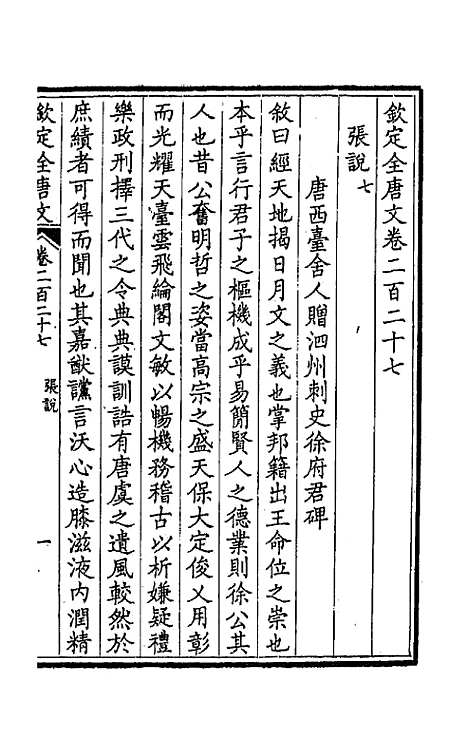 欽定全唐文卷二百二十七
張說七
唐西臺舍人贈泗州刺史徐府君碑
敘曰經天地揭日月文之義也掌邦籍出王命位之崇也
本乎言行君子之樞機成乎易簡賢人之德業則徐公其
人也昔公奮明哲之姿當高宗之盛天保大定俊乂用彰
而光耀天臺雲飛綸閣文敏以暢機務稽古以析嫌疑禮
樂政刑擇三代之令典典謨訓誥有唐虞之遺風較然於
庶績者可得而聞也其嘉猷讜言沃心造膝滋液內潤精
欽定全唐文
卷二百二十七
張說
一